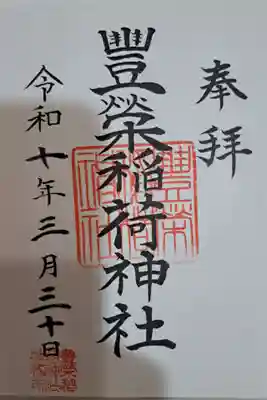 奉拝
豐榮稲荷神社
令和十年三月三十日